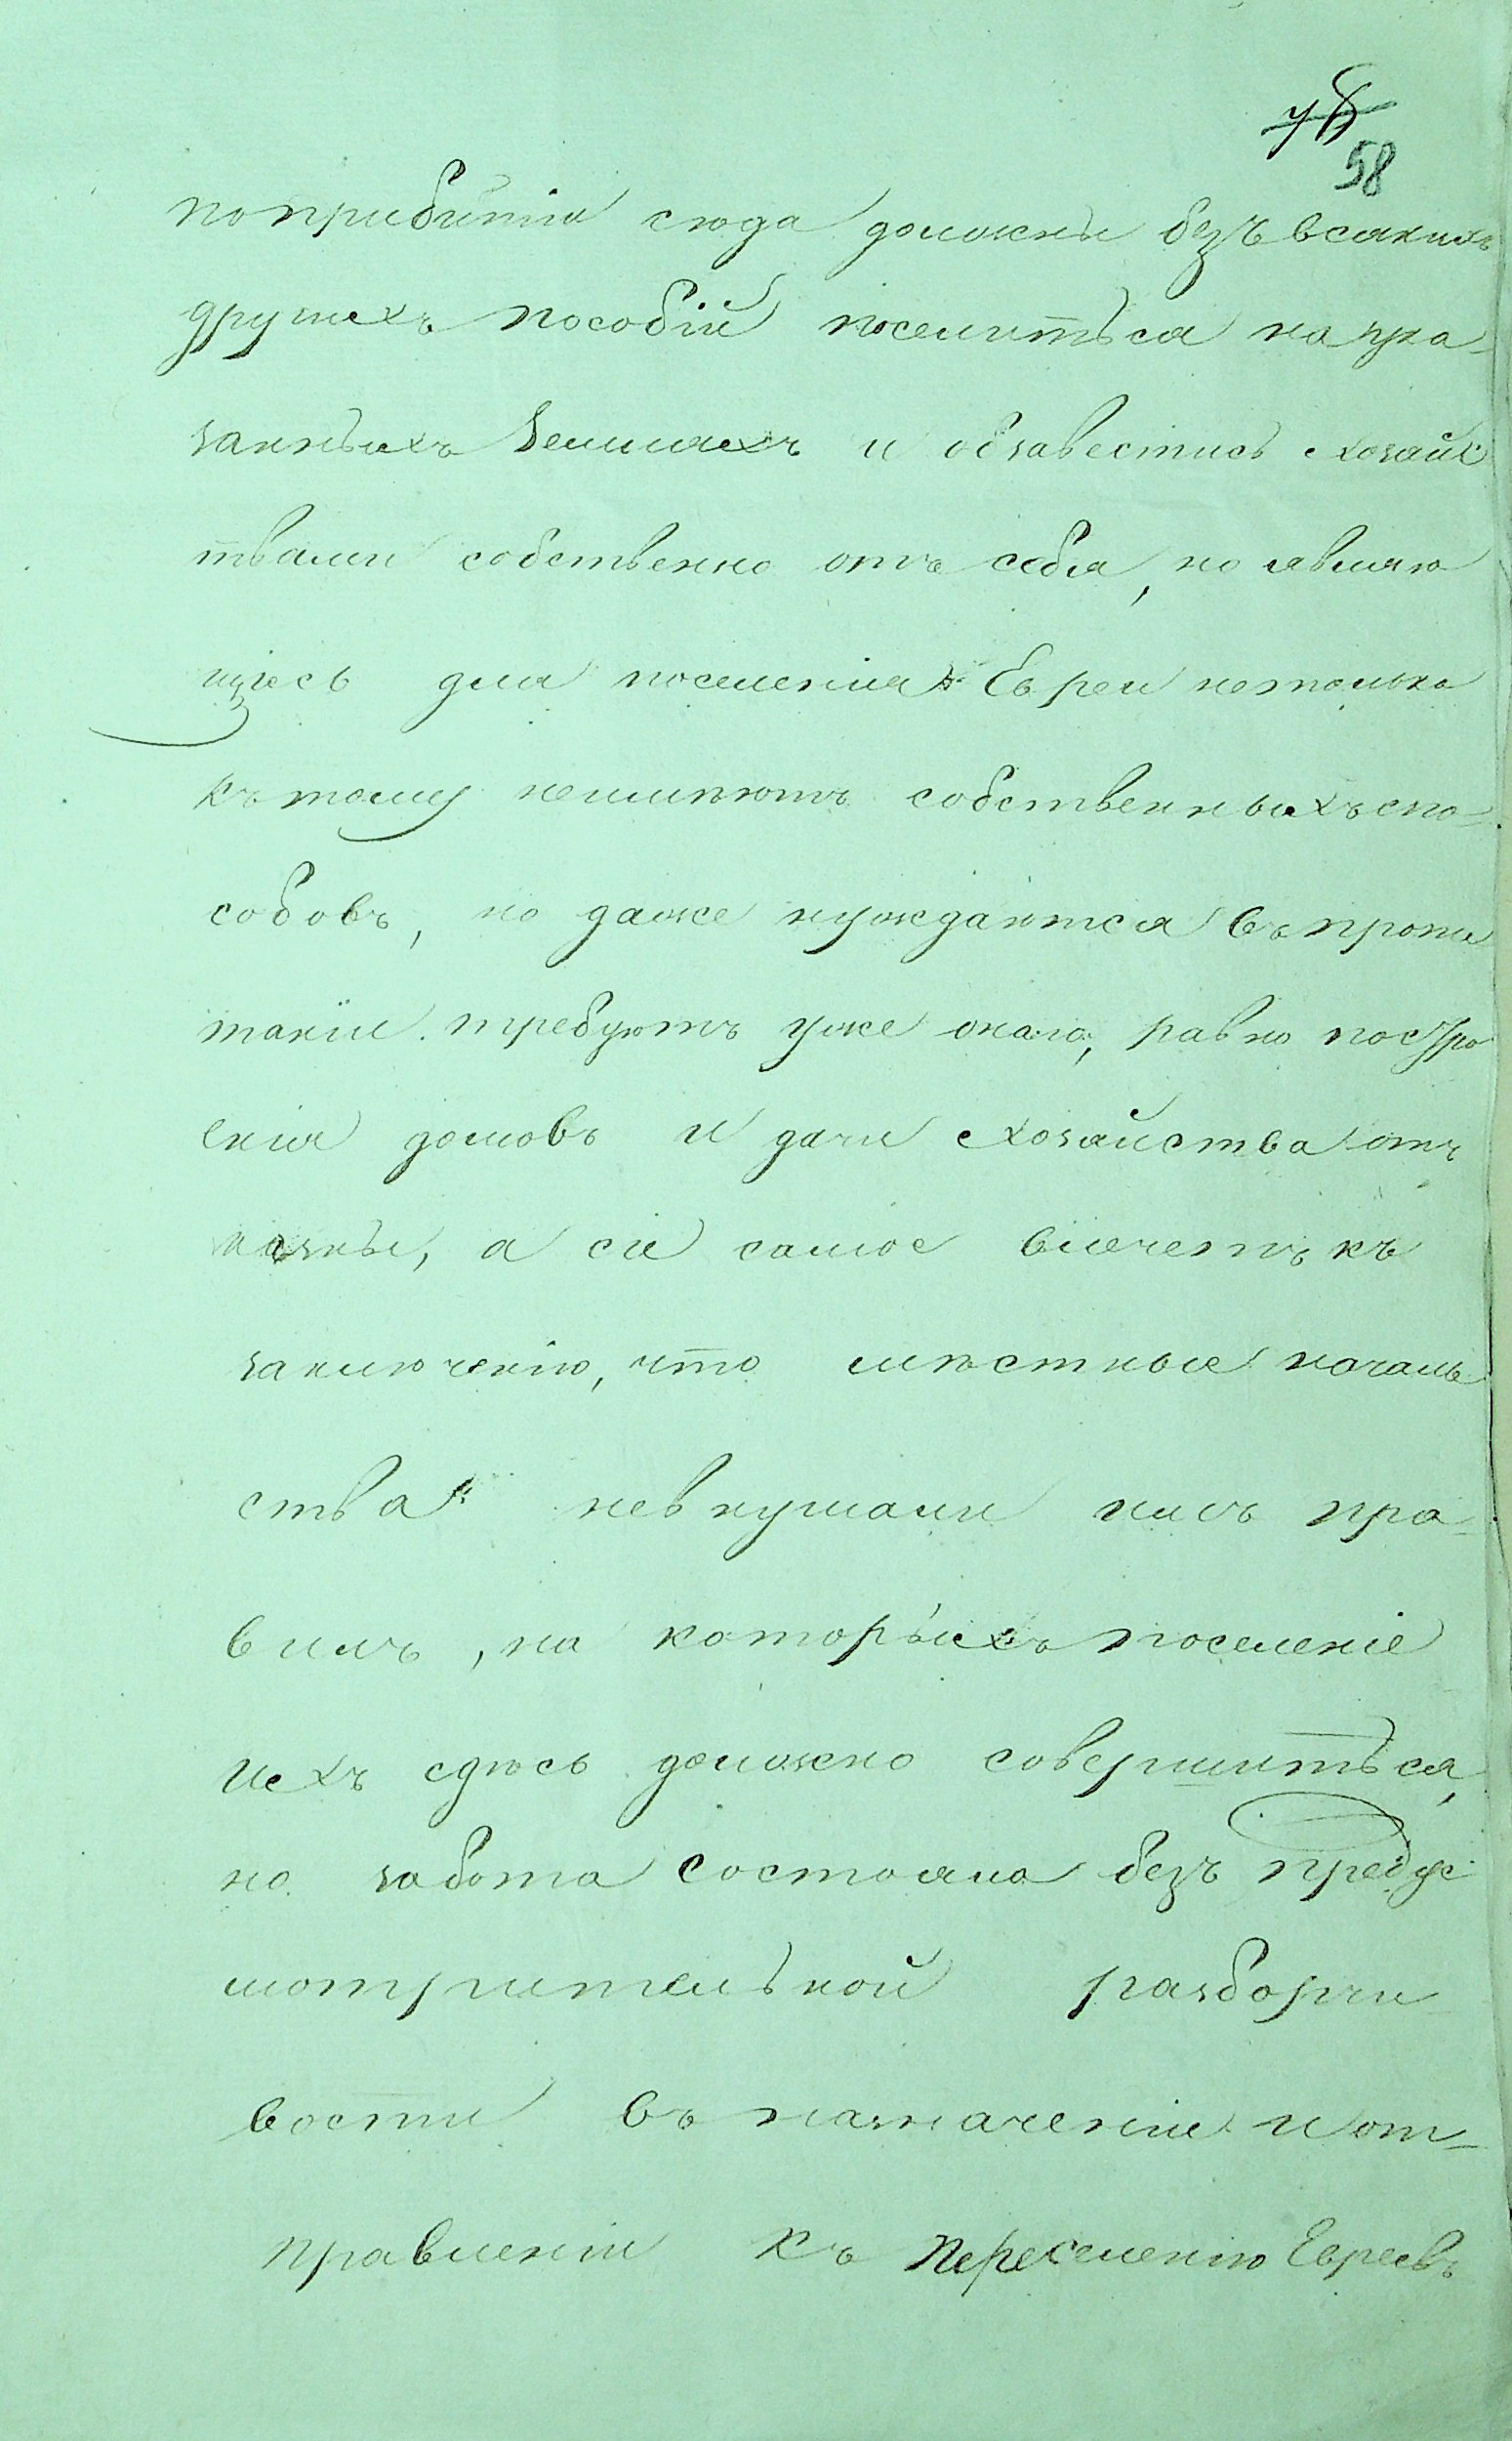 58
поприбытіи сюда должны безъ всякихъ
другихъ пособій поселиться на ука-
занныхъ землях и обзавестись хозяйс
твами собственно отъ себя, но являю
щіесь для поселенія Евреи нетолько
къ тому неимѣютъ собственныхъ спо-
собовъ, но даже нуждаются въ пропи
таніи. требуютъ уже онаго, равно постро
енія домовъ и дачи хозяйства отъ
казны, а сіе самое влечетъ къ
заключенію, что мѣстные началь
ства невнушали имъ пра-
вилъ, на которыхъ поселеніе
ихъ сдѣсь должно совершиться,
но забота состояла безъ предус
мотрительной разборчи
вости въ назначеніи и от-
правленіи къ переселенію Евреевъ